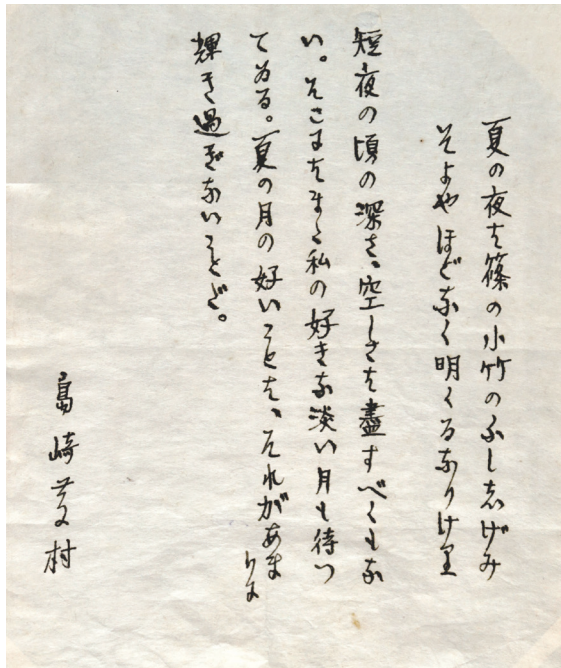 夏の夜は篠の小竹のふししげみ
そよやほどなく明くるなりけり
短夜の頃の深さ、空しさは盡すべくもな
い。そこにはまた私の好きな淡い月も待つ
てゐる。夏の月の好いことは、それがあまりに
輝き過ぎないことだ。
島崎藤村